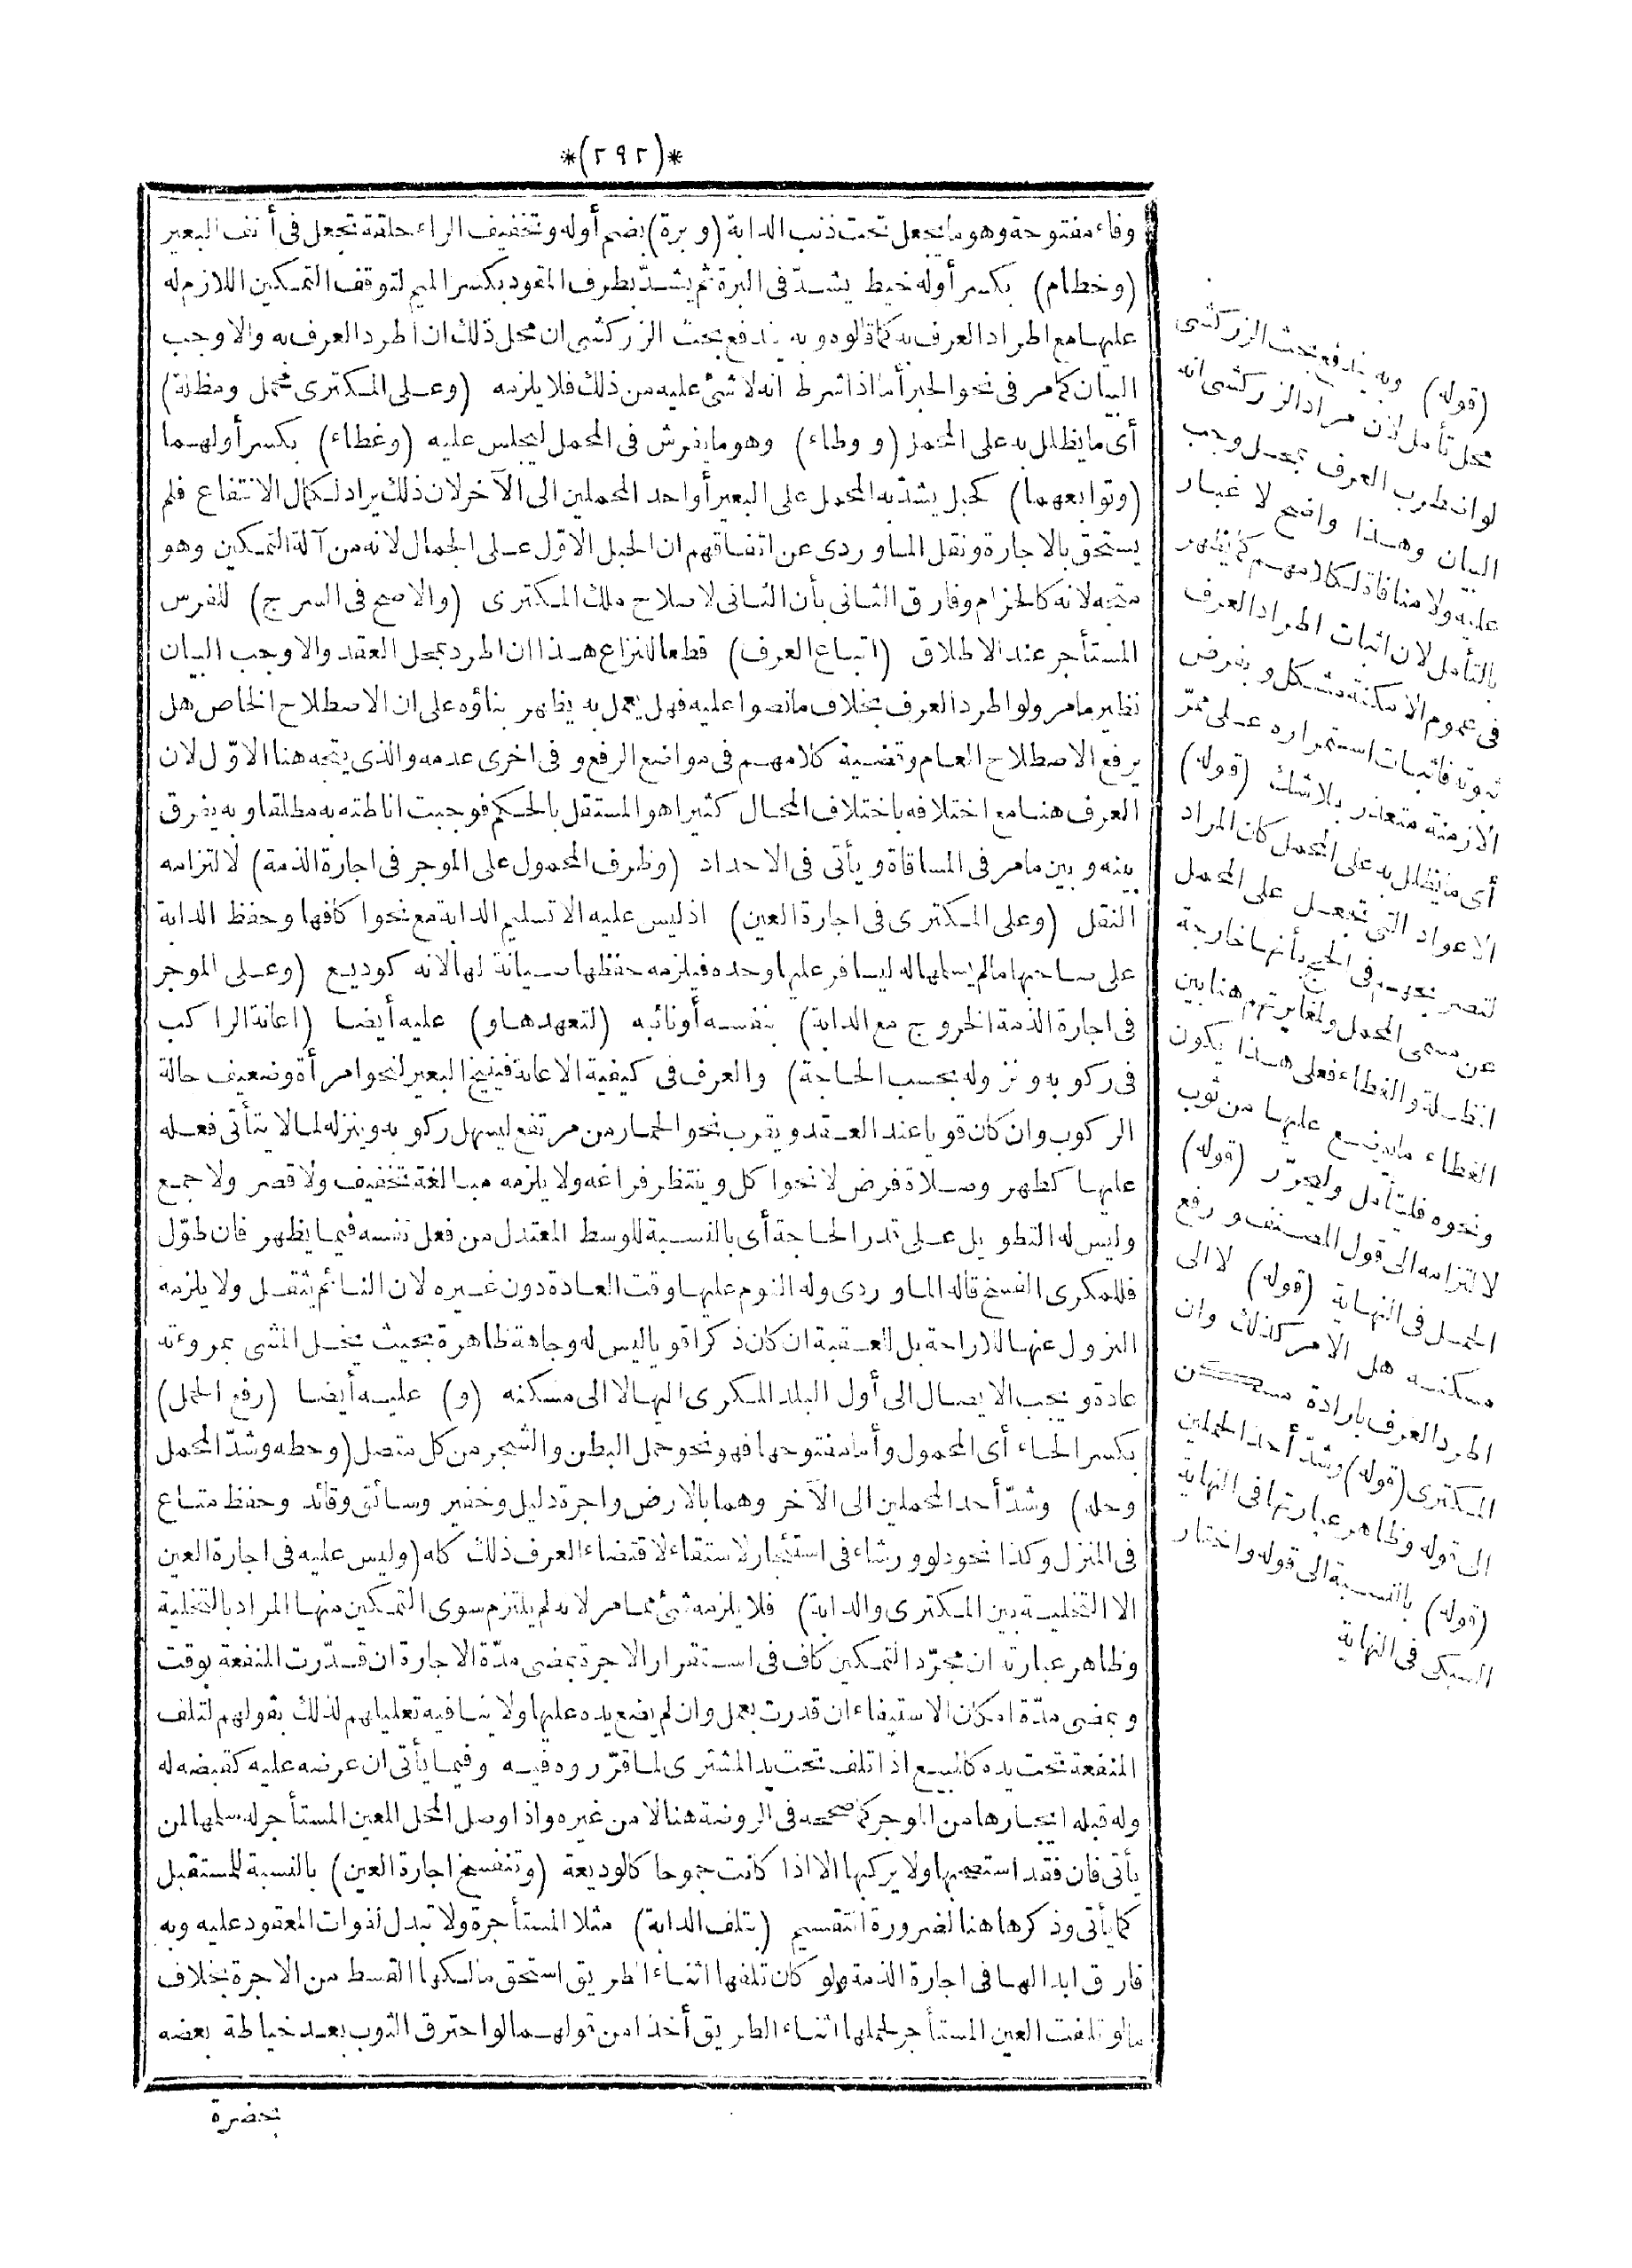 *(٢٩٢)*
وفاء مفتوحة وهو ما يجعل تحت ذنب الدابة (وبرة) بضم أوله وتخفيف الراء حلقة تجعل في أنف البعير
(وخطام) بكسر أوله خيط يشدّ في البرة ثم يشدّ بطرف المقود بكسر الميم لتوقف التمكين اللازم له
عليها مع اطراد العرف به كما قالوه وبه يندفع بحث الزركشي ان محل ذلك ان اطرد العرف به والا وجب
البيان كما مر في نحو الحبر أما اذا شرط انه لا شئ عليه من ذلك فلا يلزمه (وعلى المكترى محمل ومظلة)
أى ما يظلل به على المحمل (ووطاء) وهو ما يفرش في المحمل ليجلس عليه (وغطاء) بكسر أولهما
(وتوابعهما) كحبل يشدّ به المحمل على البعير أو احد المحملين الى الآخر لان ذلك يراد لكمال الانتفاع فلم
يستحق بالاجارة ونقل الماوردى عن اتفاقهم ان الحبل الاوّل على الجمال لانه من آلة التمكين وهو
متجه لانه كالحزام وفارق الثانى بأن الثانى لاصلاح ملك المكترى (والاصح في السرج) للفرس
المستأجر عند الاطلاق (اتباع العرف) قطعا للنزاع هذا ان اطرد بمحل العقد والا وجب البيان
نظير ما مر ولو اطرد العرف بخلاف ما نصوا عليه فهل يعمل به يظهر بناؤه على ان الاصطلاح الخاص هل
يرفع الاصطلاح العام وقضية كلامهم في مواضع الرفع وفى اخرى عدمه والذى يتجه هنا الاوّل لان
العرف هنا مع اختلافه باختلاف المحال كثيرا هو المستقل بالحكم فوجبت اناطته به مطلقا وبه يفرق
بينه وبين ما مر في المساقاة ويأتى في الاحداد (وظرف المحمول على الموجر في اجارة الذمة) لالتزامه
النقل (وعلى المكترى في اجارة العين) اذ ليس عليه الا تسليم الدابة مع نحو اكافها وحفظ الدابة
على صاحبها ما لم يسلمها له ليسافر عليها وحده فيلزمه حفظها صيانة لها لانه كوديع (وعلى الموجر
في اجارة الذمة الخروج مع الدابة) بنفسه أو نائبه (لتعهدها و) عليه أيضا (اعانة الراكب
في ركوبه ونزوله بحسب الحاجة) والعرف في كيفية الاعانة فينيخ البعير لنحو امرأة وضعيف حالة
الركوب وان كان قويا عند العقد ويقرب نحو الحمار من مرتفع ليسهل ركوبه وينزله لما لا يتأتى فعله
عليها كطهر وصلاة فرض لا نحو اكل وينتظر فراغه ولا يلزمه مبالغة تخفيف ولا قصر ولا جمع
وليس له التطويل على قدر الحاجة أى بالنسبة للوسط المعتدل من فعل نفسه فيما يظهر فان طوّل
فللمكرى الفسخ قاله الماوردى وله النوم عليها وقت العادة دون غيره لان النائم يثقل ولا يلزمه
النزول عنها للاراحة بل لعقبة ان كان ذكرا قويا ليس له وجاهة ظاهرة بحيث يخل المشى بمروءته
عادة ويجب الايصال الى أول البلد المكرى اليها لا الى مسكنه (و) عليه أيضا (رفع الحمل)
بكسر الحاء أى المحمول وأما مفتوحها فهو نحو حمل البطن والشجر من كل متصل (وحطه وشدّ المحمل
وحله) وشدّ أحد المحملين الى الآخر وهما بالارض واجرة دليل وخفير وسائق وقائد وحفظ متاع
في المنزل وكذا نحو دلو ورشاء في استئجار لاستقاء لاقتضاء العرف ذلك كله (وليس عليه في اجارة العين
الا التخلية بين المكترى والدابة) فلا يلزمه شئ مما مر لانه لم يلتزم سوى التمكين منها المراد بالتخلية
وظاهر عبارته ان مجرّد التمكين كاف في استقرار الاجرة بمضى مدّة الاجارة ان قدّرت المنفعة بوقت
وبمضى مدّة امكان الاستيفاء ان قدرت بعمل وان لم يضع يده عليها ولا ينافيه تعليلهم لذلك بقولهم لتلف
المنفعة تحت يده كالمبيع اذا تلف تحت يد المشترى لما قرّروه فيه وفيما يأتى ان عرضه عليه كقبضه له
وله قبله ايجارها من الموجر كما صححه في الروضة هنا لا من غيره واذا وصل المحل المعين المستأجر له سلمها لمن
يأتى فان فقد استصحبها ولا يركبها الا اذا كانت جموحا كالوديعة (وتنفسخ اجارة العين) بالنسبة للمستقبل
كما يأتى وذكرها هنا لضرورة التقسيم (بتلف الدابة) مثلا المستأجرة ولا تبدل لفوات المعقود عليه وبه
فارق ابدالها في اجارة الذمة ولو كان تلفها اثناء الطريق استحق مالكها القسط من الاجرة بخلاف
ما لو تلفت العين المستأجر لحملها اثناء الطريق أخذا من قولهما لو احترق الثوب بعد خياطة بعضه
بحضرة
(قوله) وبه يندفع بحث الزركشى
محل تأمل لان مراد الزركشى انه
لو اضطرب العرف بمحل وجب
البيان وهذا واضح لا غبار
عليه ولا منافاة لكلامهم كما يظهر
بالتأمل لان اثبات اطراد العرف
في عموم الامكنة مشكل وبفرض
ثبوته فاثبات استمراره على ممرّ
الازمنة متعذر بلا شك (قوله)
أى ما يظلل به على المحمل كان المراد
الاعواد التى تجعل على المحمل
لتصريحهم في الحج بأنها خارجة
عن مسمى المحمل ولمغايرتهم هنا بين
المظلة والغطاء فعلى هذا يكون
الغطاء ما يوضع عليها من ثوب
ونحوه فليتأمل وليحرّر (قوله)
لالتزامه الى قول المصنف ورفع
الحمل في النهاية (قوله) لا الى
مسكنه هل الامر كذلك وان
اطرد العرف بارادة مسكن
المكترى (قوله) وشدّ أحد المحملين
الى قوله وظاهر عبارته فى النهاية
(قوله) بالنسبة الى قوله واختار
السبكى في النهاية